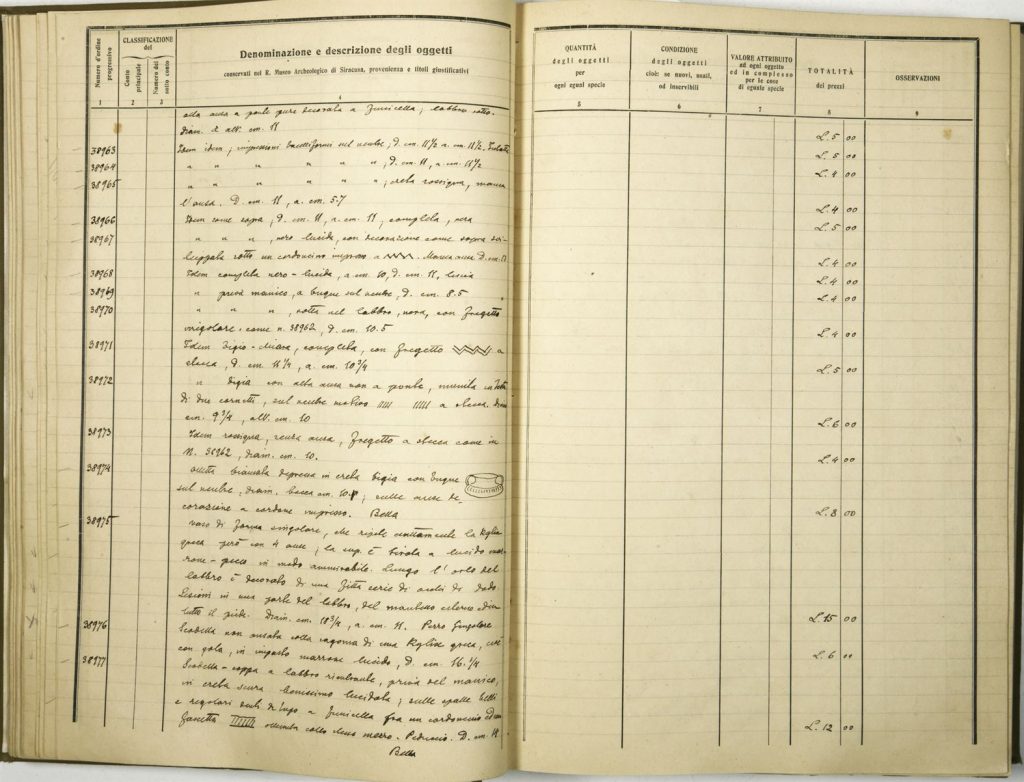 Numero d'ordine progressivo
CLASSIFICAZIONE del
Conto principale
Numero del sotto conto
Denominazione e descrizione degli oggetti
conservati nel R. Museo Archeologico di Siracusa, provenienza e titoli giustificativi
1 2 3 4
QUANTITÀ degli oggetti per ogni egual specie
CONDIZIONE degli oggetti cioè: se nuovi, usati, od inservibili
VALORE ATTRIBUITO ad ogni oggetto ed in complesso per le cose di eguale specie
TOTALITÀ dei prezzi
OSSERVAZIONI
5 6 7 8 9
alta ansa a ponte pure decorata a funicella; labbro rotto.
diam. e alt. cm. 11
L. 5 00
38963 Idem idem; impressioni sul ventre, d. cm. 11 1/2 a. cm. 11 1/2.
L. 5 00
38964 " " " " " ", d. cm. 11, a. cm. 11 1/2
L. 4 00
38965 " " " " " "; creta rossigna, manca
l'ansa. D. cm. 11, a. cm. 5.7
L. 4 00
38966 Idem come sopra, d. cm. 11, a. cm. 11, completa, nera
L. 5 00
38967 " " ", nero lucida, con decorazione come sopra
rotto un cordoncino impresso a Manca ansa D. cm.
L. 4 00
38968 Idem completa nero-lucida, a. cm. 10, d. cm. 11, liscia
L. 4 00
38969 " priva manico, a bugne sul ventre, d. cm. 8.5
L. 4 00
38970 " " ", rotta nel labbro, nera, con fregetto
irregolare come n. 38962, d. cm. 10.5
L. 4 00
38971 Idem bigio-nerastra, completa, con fregetto a
stecca, d. cm. 11 1/2, a. cm. 10 3/4
L. 5 00
38972 " bigia con alta ansa non a ponte, munita in
di due cornetti, sul ventre motivo //// ///// a stecca.
cm. 9 3/4, alt. cm. 10
L. 6 00
38973 Idem rossigna, senza ansa, fregetto a stecca come in
N. 38962, diam. cm. 10.
L. 4 00
38974 biansata depressa in creta bigia con bugne
sul ventre, diam. bocca cm. ; sulle anse de-
corazione a cordone impresso. Bella
L. 8 00
38975 vaso di forma singolare, che ripete esattamente la Kylix
greca però con 4 anse; la sup. è tirata a lucido mar-
rone-greco in modo ammirabile. Lungo l'orlo del
labbro è decorato di una fitta serie di occhi di dado.
Lesioni in una parte del labbro, del e di
tutto il piede. Diam. cm. 18 3/4, a. cm. 11. Pezzo singolare
L. 15 00
38976 Scodella non ansata colla sagoma di una Kylix greca, cioè
con gola, in impasto marrone lucido, d. cm. 16. 1/4
L. 6 00
38977 Scodella-coppa a labbro rientrante, priva del manico,
in creta scura benissimo lucidata; sulle spalle belli
e regolari denti di lupo a funicella fra un cordoncino ed una
fascetta ottenuta collo stesso mezzo. Peduccio. D. cm.
Bella
L. 12 00